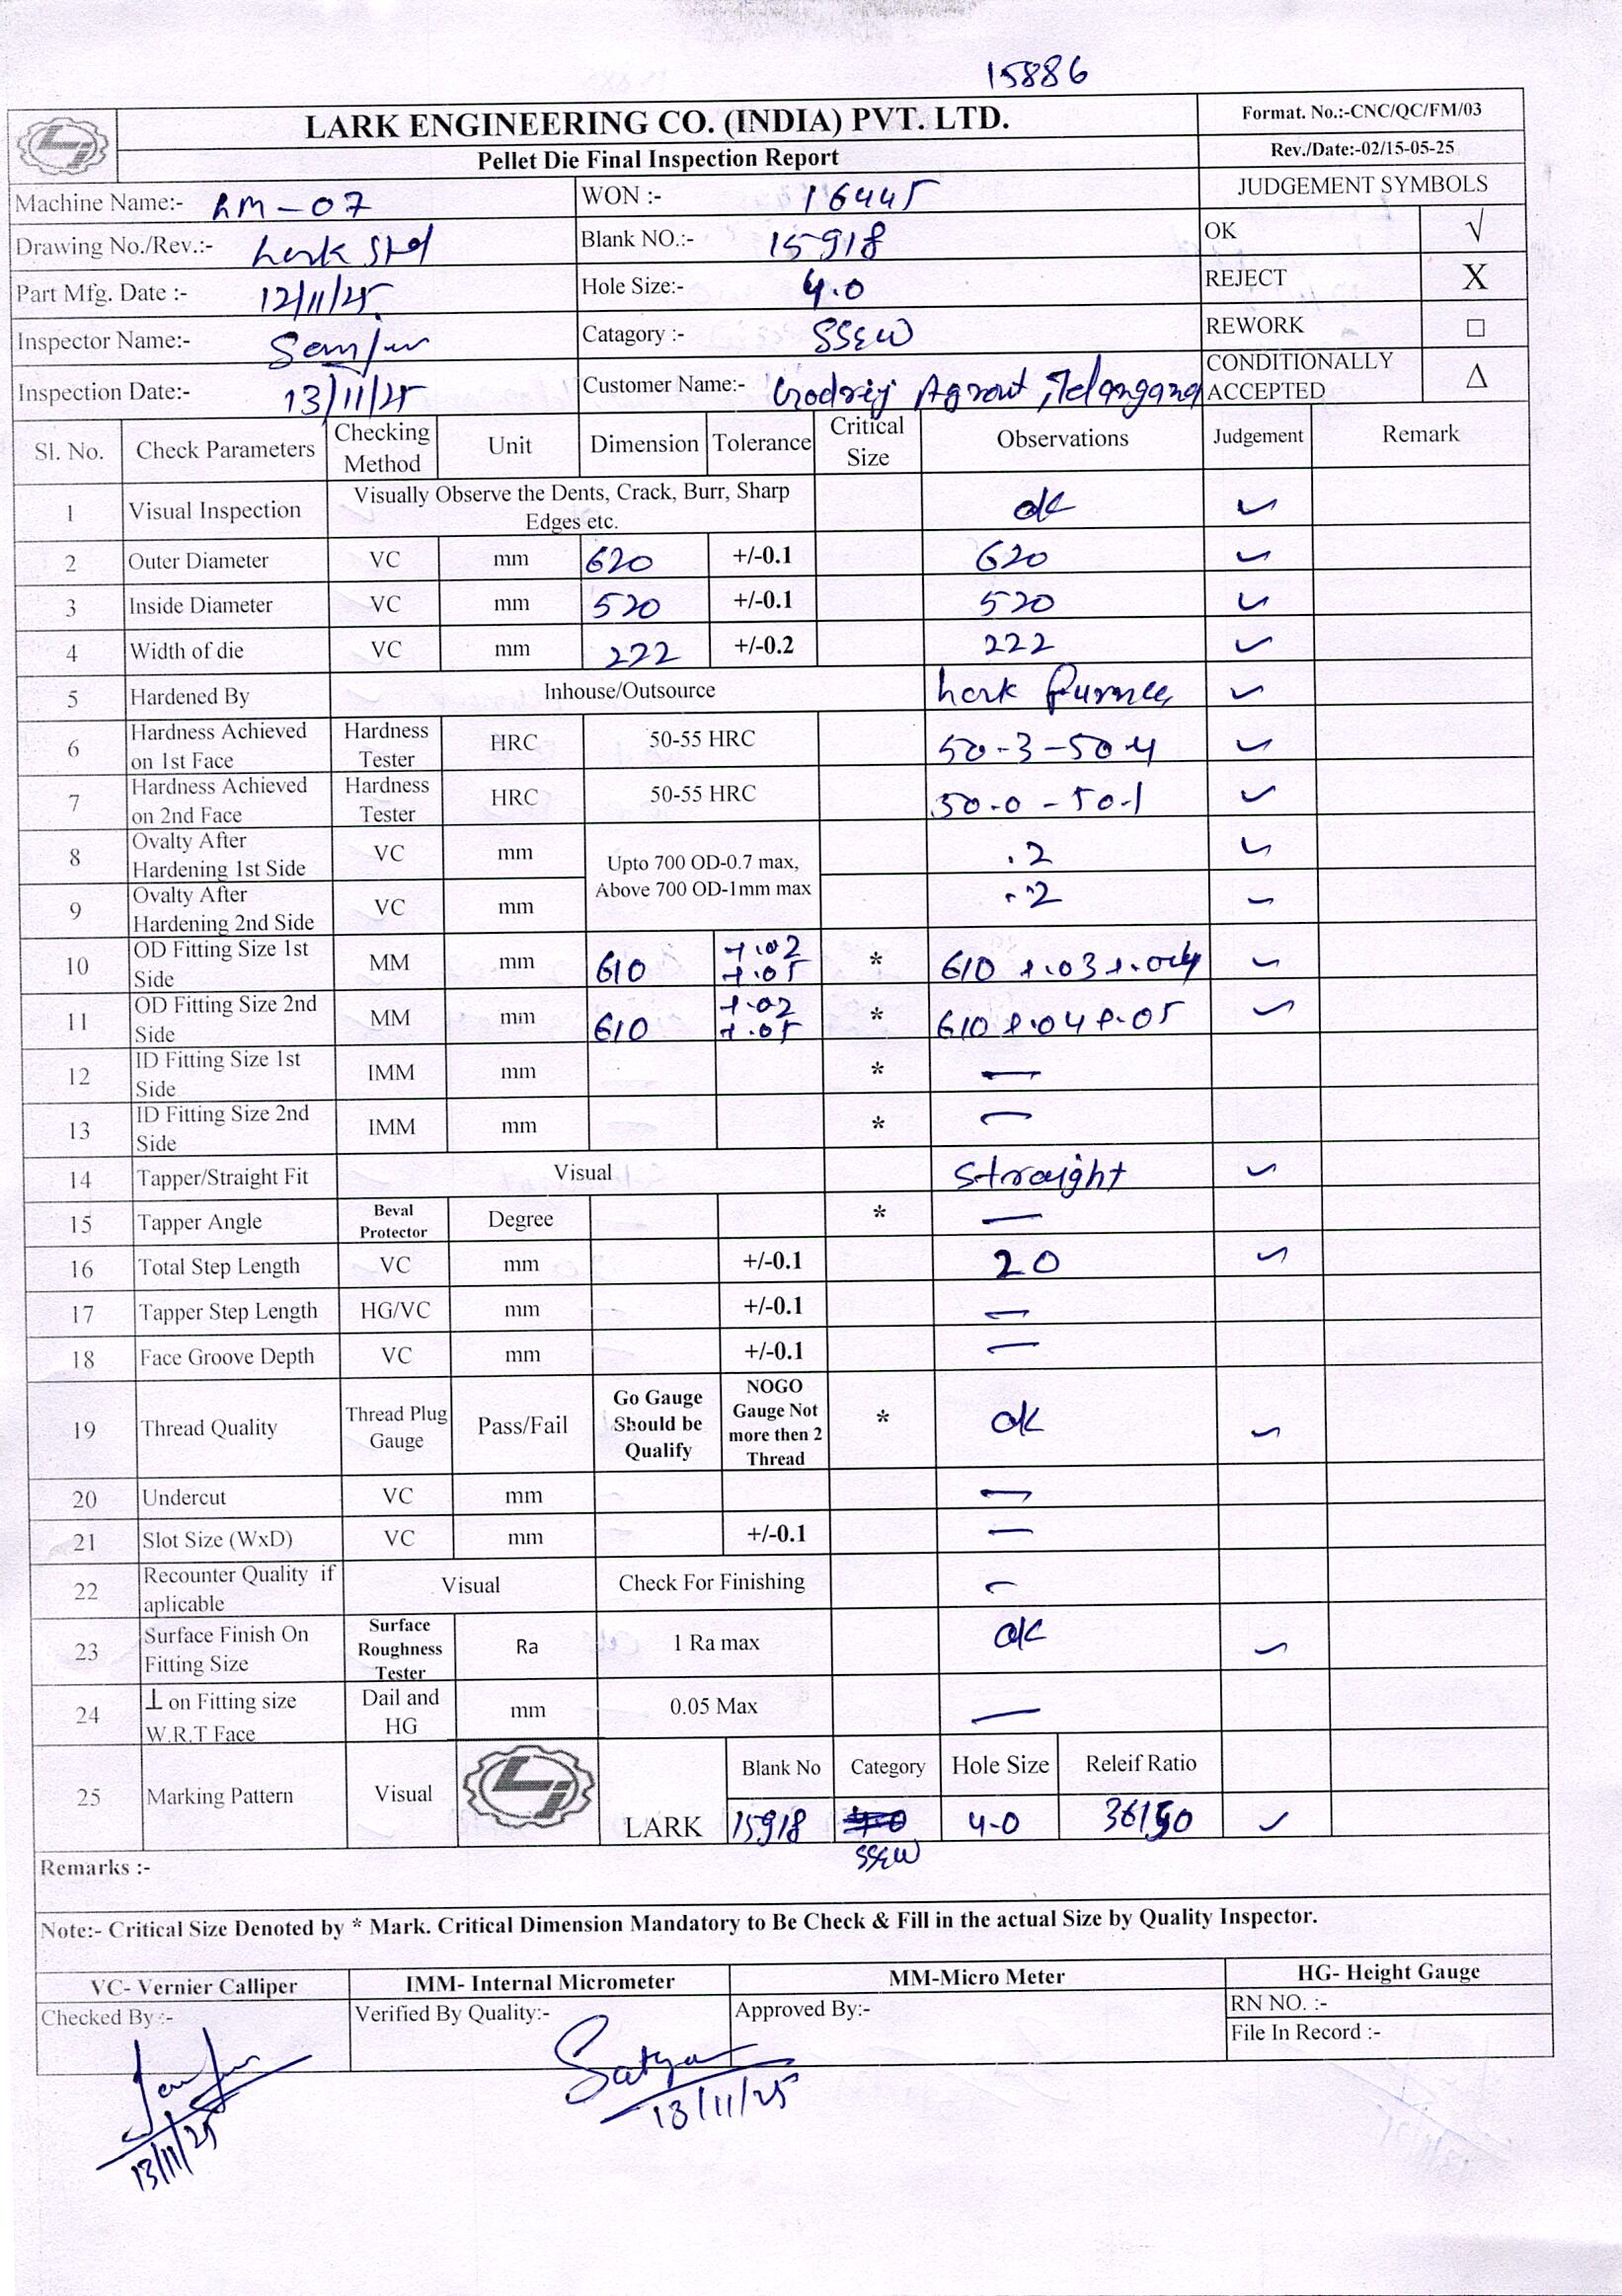 15886
LARK ENGINEERING CO. (INDIA) PVT. LTD.
Format. No.:-CNC/QC/FM/03
Pellet Die Final Inspection Report
Rev./Date:-02/15-05-25
Machine Name:- LM-07 WON :- 16445 JUDGEMENT SYMBOLS
Drawing No./Rev.:- Lark Std Blank NO.:- 15918 OK √
Part Mfg. Date :- 12/11/25 Hole Size:- 4.0 REJECT X
Inspector Name:- Catagory :- SS&W REWORK □
Inspection Date:- 13/11/25 Customer Name:- Godrej Agrovt, Telangana CONDITIONALLY ACCEPTED Δ
Sl. No. Check Parameters Checking Method Unit Dimension Tolerance Critical Size Observations Judgement Remark
1 Visual Inspection Visually Observe the Dents, Crack, Burr, Sharp Edges etc. ok ✓
2 Outer Diameter VC mm 620 +/-0.1 620 ✓
3 Inside Diameter VC mm 520 +/-0.1 520 ✓
4 Width of die VC mm 222 +/-0.2 222 ✓
5 Hardened By Inhouse/Outsource Lark furnce ✓
6 Hardness Achieved on 1st Face Hardness Tester HRC 50-55 HRC 50.3-50.4 ✓
7 Hardness Achieved on 2nd Face Hardness Tester HRC 50-55 HRC 50.0-50.1 ✓
8 Ovalty After Hardening 1st Side VC mm Upto 700 OD-0.7 max, Above 700 OD-1mm max .2 ✓
9 Ovalty After Hardening 2nd Side VC mm .2 ✓
10 OD Fitting Size 1st Side MM mm 610 +.02 +.05 * 610 +.03 +.04 ✓
11 OD Fitting Size 2nd Side MM mm 610 +.02 +.05 * 610 +.04 +.05 ✓
12 ID Fitting Size 1st Side IMM mm * —
13 ID Fitting Size 2nd Side IMM mm * —
14 Tapper/Straight Fit Visual Straight ✓
15 Tapper Angle Beval Protector Degree * —
16 Total Step Length VC mm +/-0.1 20 ✓
17 Tapper Step Length HG/VC mm +/-0.1 —
18 Face Groove Depth VC mm +/-0.1 —
19 Thread Quality Thread Plug Gauge Pass/Fail Go Gauge Should be Qualify NOGO Gauge Not more then 2 Thread * ok ✓
20 Undercut VC mm —
21 Slot Size (WxD) VC mm +/-0.1 —
22 Recounter Quality if aplicable Visual Check For Finishing —
23 Surface Finish On Fitting Size Surface Roughness Tester Ra 1 Ra max ok ✓
24 ⊥ on Fitting size W.R.T Face Dail and HG mm 0.05 Max —
25 Marking Pattern Visual LARK Blank No Category Hole Size Releif Ratio
15918 SS&W 4.0 ✓
Remarks :-
Note:- Critical Size Denoted by * Mark. Critical Dimension Mandatory to Be Check & Fill in the actual Size by Quality Inspector.
VC- Vernier Calliper IMM- Internal Micrometer MM-Micro Meter HG- Height Gauge
Checked By :- Verified By Quality:- Approved By:- RN NO. :-
File In Record :-
Satya
13/11/25
13/11/25